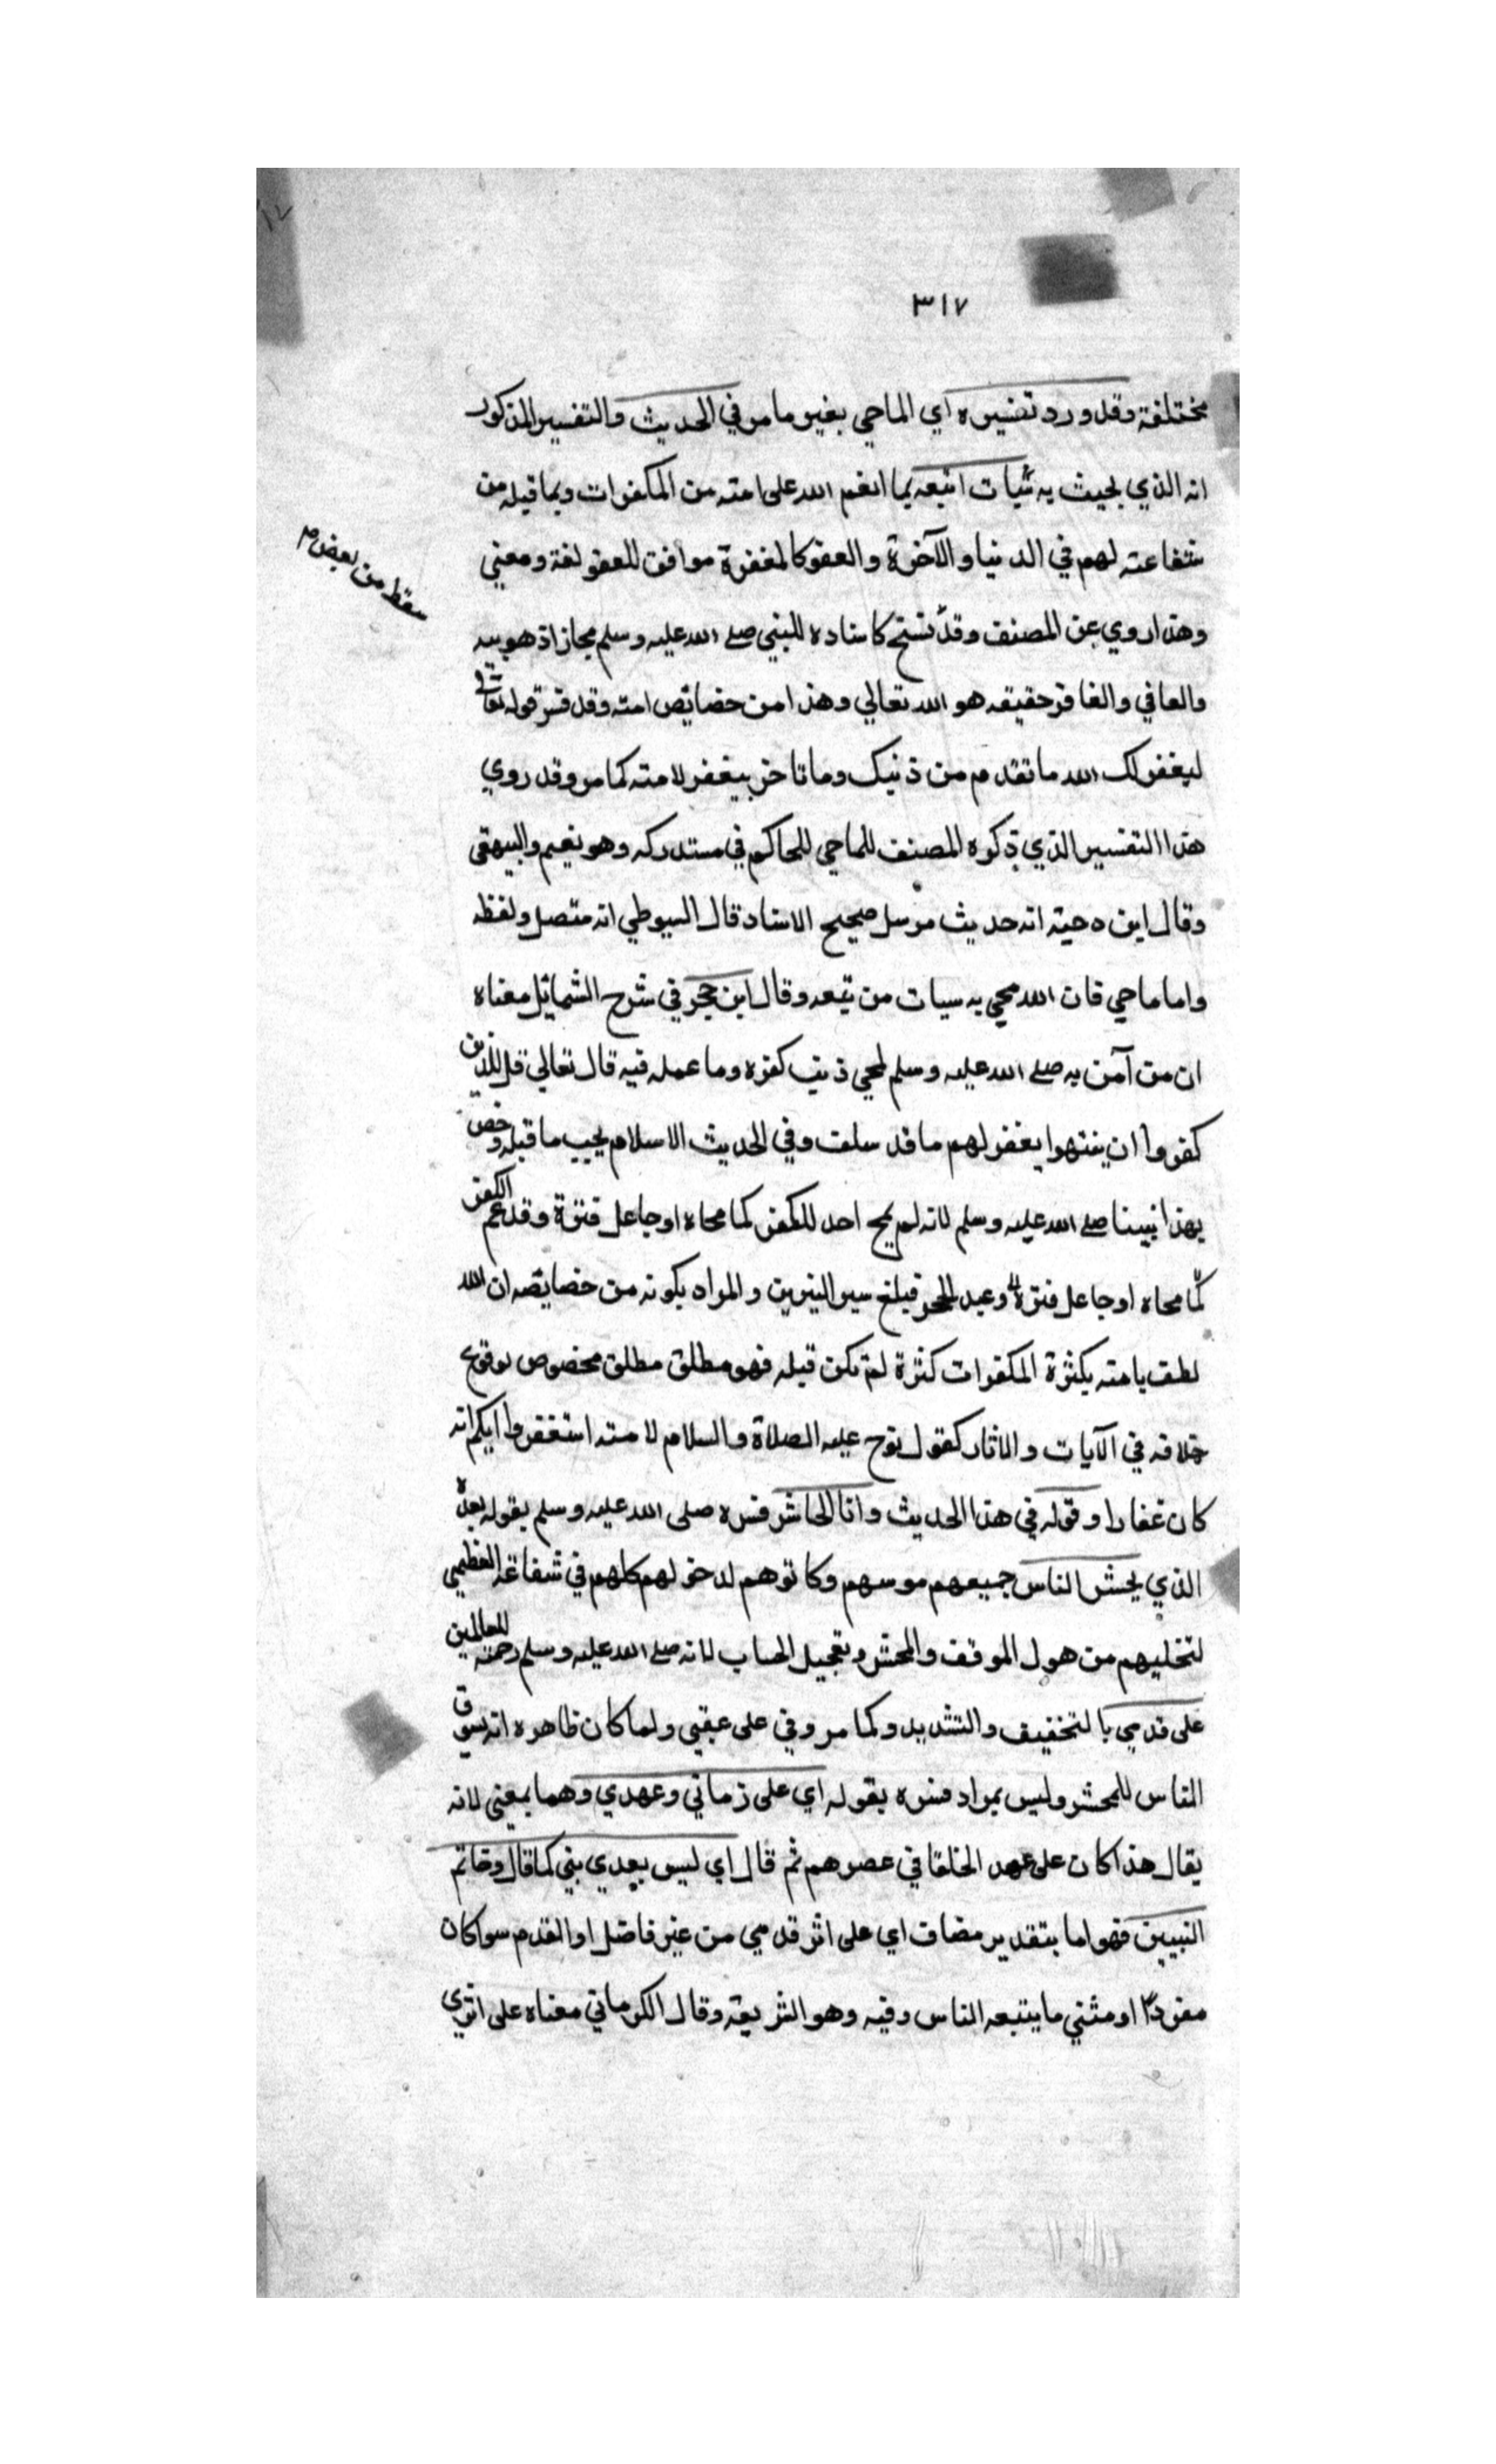 ٣١٧
مختلفة وقد ورد تفسيره اي الماحي بغير ما مر في الحديث والتفسير المذكور
انه الذي محيت به سيات اتبعه بما انعم الله على امته من المكفرات وبما قبله من
شفاعته لهم في الدنيا والآخرة والعفو كالمغفرة موافق للعفو لغة ومعني
سقط من بعض م
وهذا روي عن المصنف وقد كاسناده للبني صلى الله عليه وسلم مجاز اذ هو سبه
والعافي والغافر حقيقه هو الله تعالي وهذا من خصايص امته وقد فسر قوله تعالي
ليغفر لك الله ما تقدم من ذنبك وما تاخر بيغفر لامته كما مر وقد روي
هذا التفسير الذي ذكره المصنف للماحي للحاكم في مستدركه وهو نعيم والبيهقي
وقال ابن دحية انه حديث مرسل صحيح الاسناد قال السيوطي انه متصل ولفظه
واما ماحي فان الله محي به سيات من تبعه وقال ابن حجر في شرح الشمايل معناه
ان من آمن به صلى الله عليه وسلم محي ذنب كفره وما عمله فيه قال تعالي قل للذين
كفروا ان ينتهوا يغفر لهم ما قد سلف وفي الحديث الاسلام يجب ما قبله وخص
بهذا نبينا صلى الله عليه وسلم لانه لم يمح احد للكفر كما محاه اوجا على فترة وقد عم الكفر
كما محاه اوجا على فترة وعبد الحجر فبلغ سير النيرين والمراد بكونه من خصايصه ان الله
لطف بامته بكثرة المكفرات كثرة لم تكن قبله فهو مطلق مطلق مخصوص لوقوع
خلافه في الآيات والاثار كقول نوح عليه الصلاة والسلام لامته استغفروا ربكم انه
كان غفارا وقوله في هذا الحديث وانا الحاشر فسره صلى الله عليه وسلم بقوله بعده
الذي يحشر الناس جميعهم وكانوهم لدخولهم كلهم في شفاعة العظمي
لتخليهم من هول الموقف والمحشر وتعجيل الحساب لانه صلى الله عليه وسلم رحمة للعالمين
على قدمي بالتخفيف والتشديد وكما مر وفي على عقبي ولما كان ظاهره انه يسوق
الناس للمحشر وليس بمراد فسره بقوله اي على زماني وعهدي وهما بمعني لانه
يقال هذا كان على عهد الخلفا في عصرهم ثم قال اي ليس بعدي بني كما قال وخاتم
النبيين فهو اما بتقدير مضاف اي على اثر قدمي من غير فاضل او القدم سوا كان
مفردا او مثني ما يتبعه الناس وفيه وهو الشريعة وقال الكرماني معناه على اثري